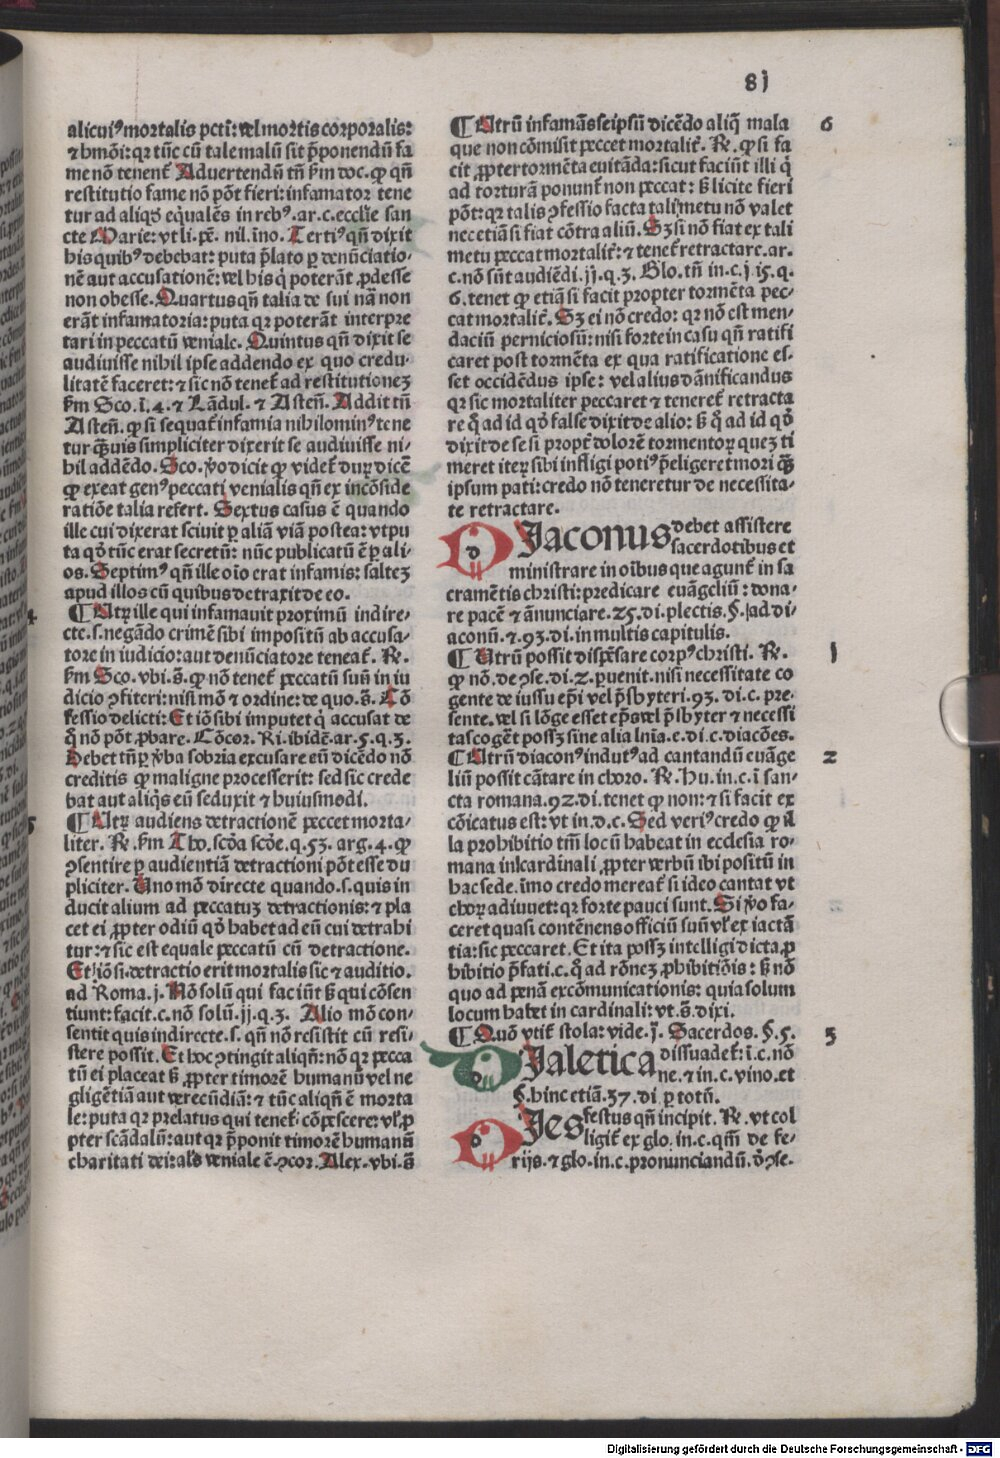 8j
alicuiꝰ mortalis pcti: vel mortis corporalis:
⁊ hmōi: qꝛ tūc cū tale malū sit p̄ponendū fa
me nō tenet̄. Aduertendū tn̄ ẜm doc. ꝙ qn̄
restitutio fame nō pōt fieri: infamator tene
tur ad aliqd̄ eq̄ualēs in rebꝰ. ar. c. ecclīe san
cte Marie: vt li. pē. nil. īno. Tertiꝰ qn̄ dixit
his quibꝰ debebat: puta p̄lato ꝑ denūciatio-
nē aut accusationē: vel his q̇ poterāt ꝓdesse
non obesse. Quartus qn̄ talia de sui nā non
erāt infamatoria: puta qꝛ poterāt interpre
tari in peccatū veniale. Quintus qn̄ dixit se
audiuisse nihil ipse addendo ex quo credu-
litatē faceret: ⁊ sic nō tenet̄ ad restitutionez
ẜm Sco. ī. 4. ⁊ Lādul. ⁊ Asteñ. Addit tn̄
Asteñ. ꝙ si sequat̄ infamia nihilominꝰ tene
tur q̄uis simpliciter dixerit se audiuisse ni-
hil addēdo. Sco. v̊o dicit ꝙ videt̄ duꝝ dicē
ꝙ exeat genꝰ peccati venialis qn̄ ex incōside
ratiōe talia refert. Sextus casus ē quando
ille cui dixerat sciuit ꝑ aliā viā postea: vt pu
ta qd̄ tūc erat secretū: nūc publicatū ē ꝑ ali-
os. Septimꝰ qn̄ ille oīo erat infamis: saltez
apud illos cū quibus detraxit de eo.
4
¶ Utꝝ ille qui infamauit proximū indire-
cte. s. negādo crimē sibi impositū ab accusa-
tore in iudicio: aut denūciatore teneat̄. R̄.
ẜm Sco. vbi. s̄. ꝙ nō tenet̄ peccatū suū in iu
dicio ꝯfiteri: nisi mō ⁊ ordine: de quo. s̄. Cō
fessio delicti: Et iō sibi imputet q̇ accusat de
q̄ nō pōt ꝓbare. Cōcor. Ri. ibidē. ar. 5. q. 3.
Debet tn̄ ꝑ v̊ba sobria excusare eū dicēdo nō
creditis ꝙ maligne processerit: sed sic crede
bat aut aliq̇s eū seduxit ⁊ huiusmodi.
5
¶ Utꝝ audiens detractionē peccet morta-
liter. R̄. ẜm Tho. scd̄a scd̄e. q. 53. arg. 4. ꝙ
ꝯsentire ꝑ audientiā detractioni pōt esse du
pliciter. Uno mō directe quando. s. quis in
ducit alium ad peccatuz detractionis: ⁊ pla
cet ei ꝓpter odiū qd̄ habet ad eū cui detrahi
tur: ⁊ sic est equale peccatū cū detractione.
Et iō si. detractio erit mortalis sic ⁊ auditio.
ad Roma. j. Nō solū qui faciūt ẞ qui cōsen
tiunt: facit. c. nō solū. ij. q. 3. Alio mō con-
sentit quis indirecte. s. qn̄ nō resistit cū resi-
stere possit. Et hoc ꝯtingit aliqn̄: nō qꝛ pecca
tū ei placeat ẞ ꝓpter timorē humanū vel ne
gligētiā aut verecūdiā: ⁊ tūc aliqn̄ ē morta
le: puta qꝛ prelatus qui tenet̄ cōpescere: vl̄ ꝓ
pter scādalū: aut qꝛ p̄ponit timorē humanū
charitati dei: als̄ veniale ē. ꝯcor. Alex. vbi. s̄
6
¶ Utrū infamās seipsū dicēdo aliq̄ mala
que non cōmisit peccet mortalit̄. R̄. ꝙ si fa
cit ꝓpter tormēta euitāda: sicut faciūt illi q̇
ad torturā ponunt̄ non peccat: ẞ licite fieri
pōt: qꝛ talis ꝯfessio facta tali metu nō valet
nec etiā si fiat cōtra aliū. Sz si nō fiat ex tali
metu peccat mortalit̄: ⁊ tenet̄ retractare. ar.
c. nō sūt audiēdi. ij. q. 3. Glo. tn̄ in. c. j. 15. q.
6. tenet ꝙ etiā si facit propter tormēta pec-
cat mortalit̄. Sz ei nō credo: qꝛ nō est men-
daciū perniciosū: nisi forte in casu qn̄ ratifi
caret post tormēta ex qua ratificatione es-
set occidēdus ipse: vel alius dānificandus
qꝛ sic mortaliter peccaret ⁊ teneret̄ retracta
re q̄ ad id qd̄ false dixit de alio: ẞ q̄ ad id qd̄
dixit de se si propt̄ dolorē tormentoꝝ quez ti
meret iteꝝ sibi infligi potiꝰ p̄eligeret mori q̄
ipsum pati: credo nō teneretur de necessita-
te retractare.
DIaconus debet assistere
sacerdotibus et
ministrare in oībus que agunt̄ in sa
cramētis christi: predicare euāgeliū: dona-
re pacē ⁊ ānunciare. 25. di. plectis. §. ad di-
aconū. ⁊. 93. di. in multis capitulis.
1
¶ Utrū possit dispēsare corpꝰ christi. R̄.
ꝙ nō. de ꝯse. di. 2. puenit. nisi necessitate co
gente de iussu ep̄i vel p̄sbyteri. 93. di. c. pre-
sente. vel si lōge esset ep̄s vel p̄sbyter ⁊ necessi
tas cogēt possz sine alia lnīa. e. di. c. diacōes.
2
¶ Utrū diaconꝰ indutꝰ ad cantandū euāge
liū possit cātare in choro. R̄. Hu. in. c. ī san-
cta romana. 92. di. tenet ꝙ non: ⁊ si facit ex
cōicatus est: vt in. d. c. Sed veriꝰ credo ꝙ il
la prohibitio tm̄ locū habeat in ecclesia ro-
mana in cardinali ꝓpter verbū ibi positū in
hac sede. īmo credo mereat̄ si ideo cantat vt
choꝝ adiuuet: qꝛ forte pauci sunt. Si v̊o fa-
ceret quasi contēnens officiū suū vl̄ ex iactā
tia: sic peccaret. Et ita possz intelligi dicta ꝓ
hibitio p̄fati. c. q̄ ad rōnez ꝓhibitiōis: ẞ nō
quo ad penā excōmunicationis: quia solum
locum habet in cardinali: vt. s̄. dixi.
3
¶ Quō vtit̄ stola: vide. j̄. Sacerdos. §. 5.
DIaletica dissuadet̄: ī. c. nō
ne. ⁊ in. c. vino. et
§. hinc etiā. 37. di. ꝑ totū.
DIes festus qn̄ incipit. R̄. vt col
ligit̄ ex glo. in. c. qm̄ de fe-
rijs. ⁊ glo. in. c. pronunciandū. d̄ ꝯse.
Digitalisierung gefördert durch die Deutsche Forschungsgemeinschaft - DFG